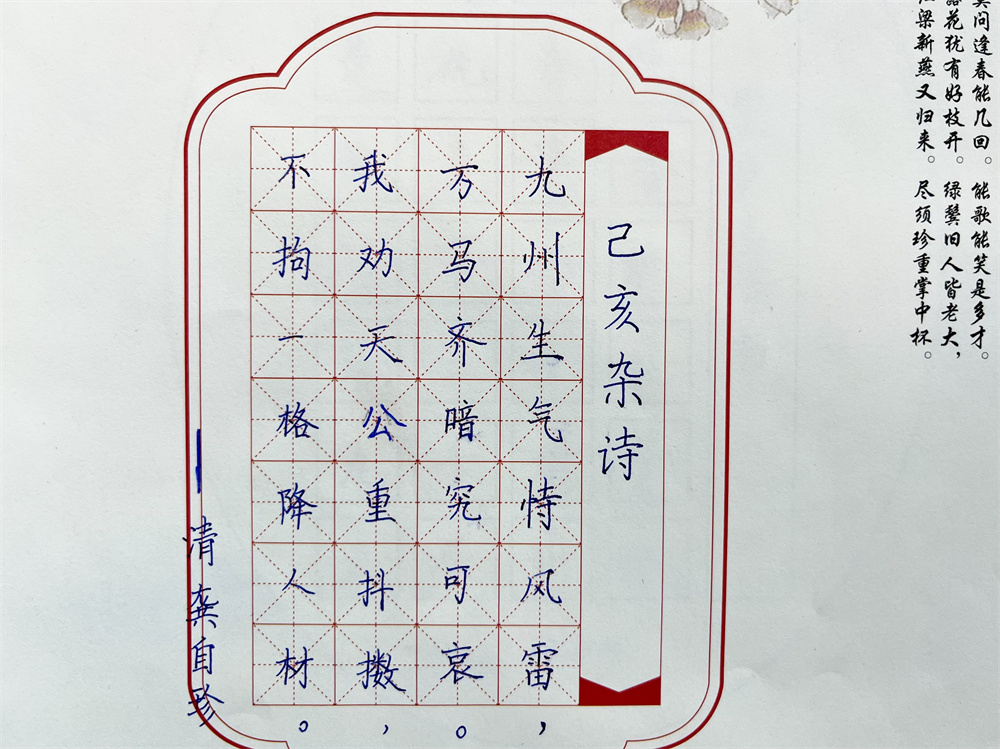 莫问逢春能几回。能歌能笑是多才。
露花犹有好枝开。绿鬓旧人皆老大，
红梁新燕又归来。尽须珍重掌中杯。
己亥杂诗
九州生气恃风雷，
万马齐暗究可哀。
我劝天公重抖擞，
不拘一格降人材。
—清龚自珍